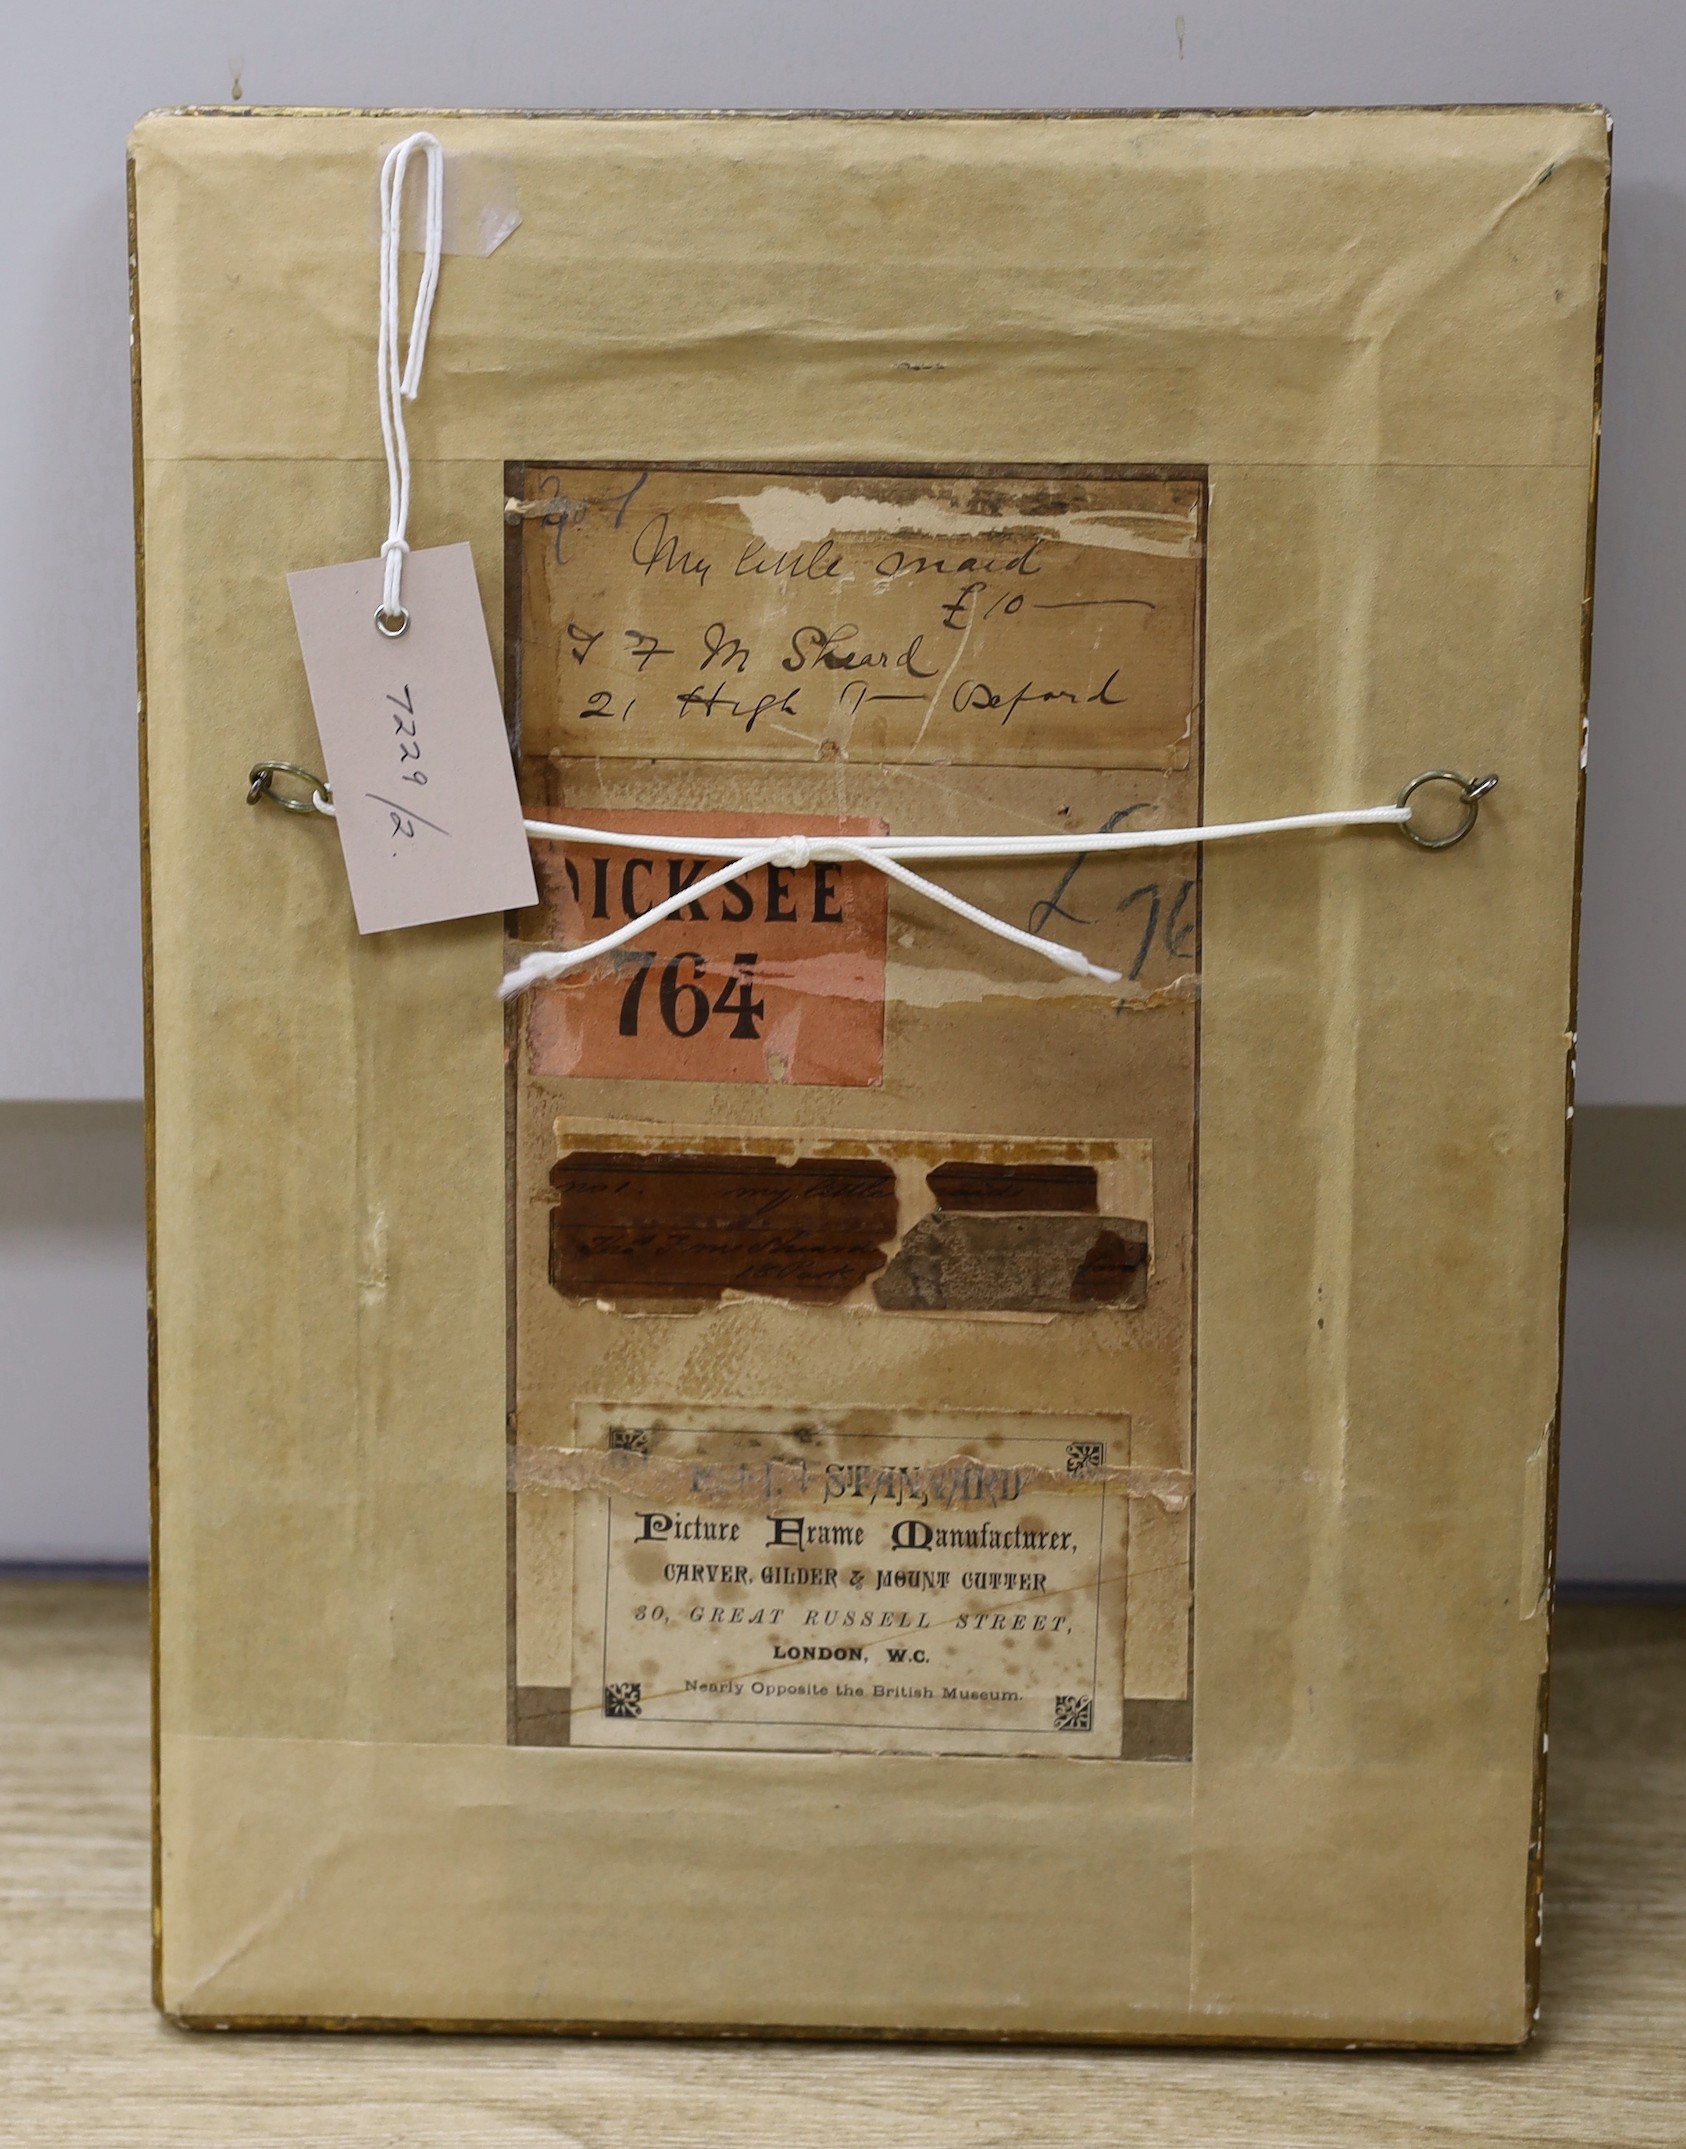 No 1
My little maid
£10
T F M Sheard
21 High Oxford
7229/2.
DICKSEE
764
76
no 1. my little maid
Thos F M Sheard
18 Park
STANNARD
Picture Frame Manufacturer,
CARVER, GILDER & MOUNT CUTTER
30, GREAT RUSSELL STREET,
LONDON, W.C.
Nearly Opposite the British Museum.